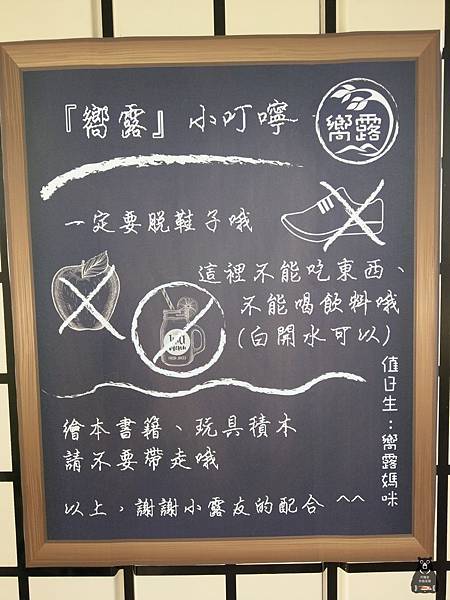 『嚮露』小叮嚀
嚮露
一定要脫鞋子哦
這裡不能吃東西、
不能喝飲料哦
(白開水可以)
繪本書籍、玩具積木
請不要帶走哦
以上，謝謝小露友的配合 ^^
值日生：嚮露媽咪